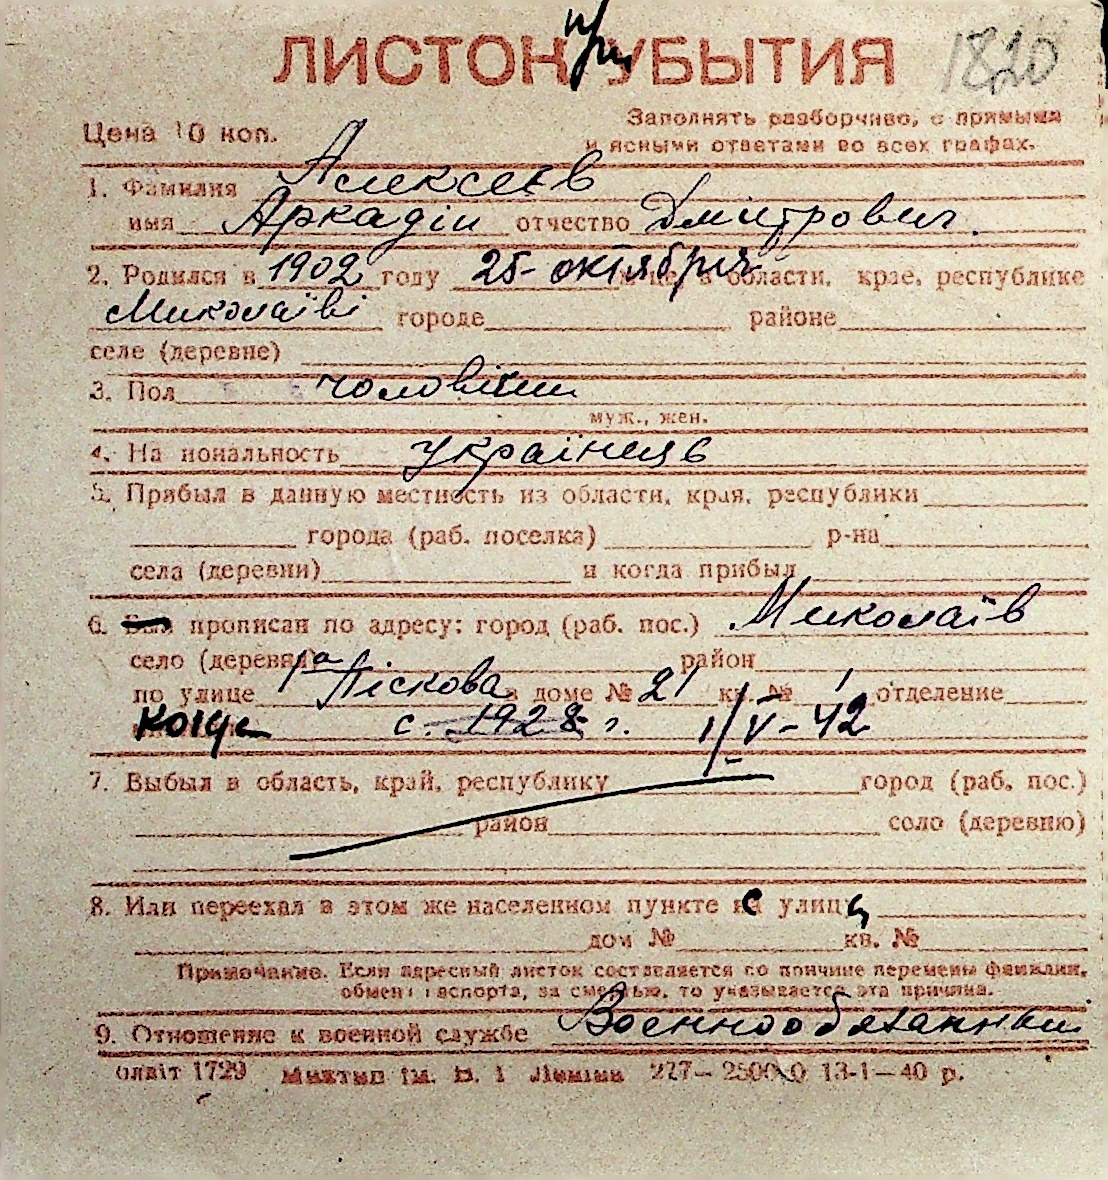 ЛИСТОК при УБЫТИЯ 1820
Цена 10 коп. Заполнять разборчиво, с прямыми
и ясными ответами во всех графах.
1. Фамилия Алексеев
имя Аркадій отчество Дмитрович.
2. Родился в 1902 году 25- октября в области, крае, республике
Миколаїві городе районе
селе (деревне)
3. Пол чоловічий
муж., жен.
4. На иональность українець
5. Прибыл в данную местность из области, края, республики
города (раб. поселка) р-на
села (деревни) и когда прибыл
6. Был прописан по адресу: город (раб. пос.) Миколаїв
село (деревня) район
по улице 1а Піскова в доме № 21 кв. № 1 отделение
когда с. 1928 г. 1/V-42
7. Выбыл в область, край, республику город (раб. пос.)
район соло (деревню)
8. Или переехал в этом же населенном пункте на улицу
дом № кв. №
Примечание. Если адресный листок составляется по причине перемены фамилии,
обмен паспорта, за смертью, то указывается эта причина.
9. Отношение к военной службе Военнообязанный
олвіт 1729 Миктип ім. В. І Леніна 227— 25000 13-1—40 р.